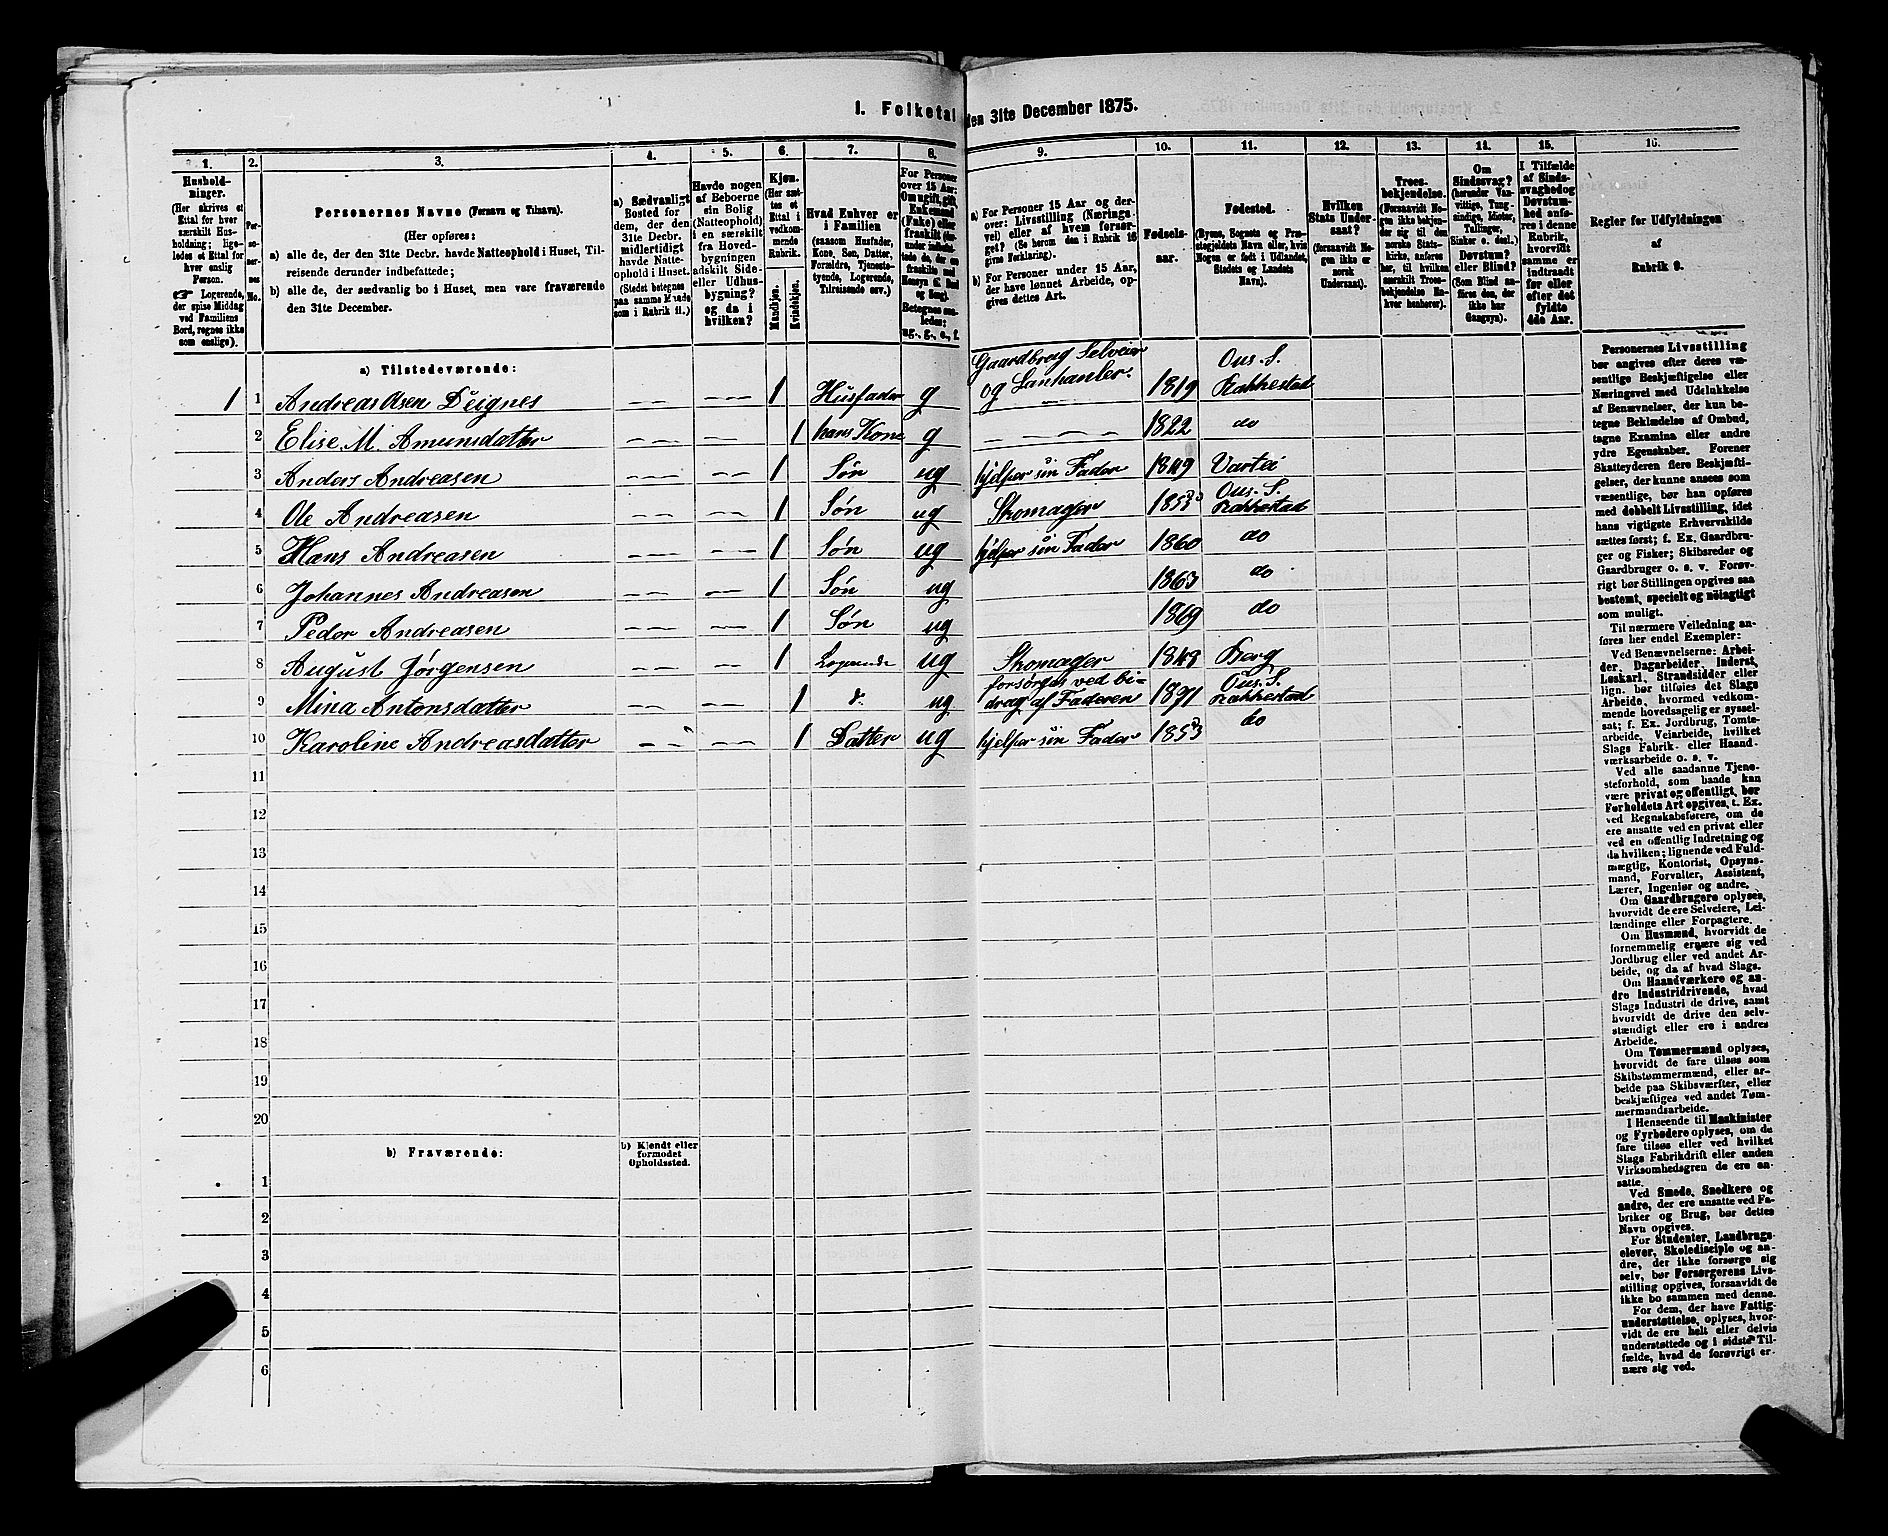 1. Folketal den 31te December 1875.
1.
2.
3.
4.
5.
6.
7.
8.
9.
10.
11.
12.
13.
14.
15.
16.
Hushold-
ninger.
(Her skrives et
Ettal for hver
særskilt Hus-
holdning; lige-
ledes et Ettal for
hver enslig
Person.
☞ Logerende,
der spise Middag
ved Familiens
Bord, regnes ikke
som enslige).
Personernes Navne (Fornavn og Tilnavn).
(Her opføres:
a) alle de, der den 31te Decbr. havde Natteophold i Huset, Til-
reisende derunder indbefattede;
b) alle de, der sædvanlig bo i Huset, men vare fraværende
den 31te December.
a) Sædvanligt
Bosted for
dem, der den
31te Decbr.
midlertidigt
havde Natte-
ophold i Huset.
(Stedet betegnes
paa samme Maade
som i Rubrik 11.)
Havde nogen
af Beboerne
sin Bolig
(Natteophold)
i en særskilt
fra Hoved-
bygningen
adskilt Side-
eller Udhus-
bygning?
og da i
hvilken?
Kjøn.
(Her sæt-
tes et
Ettal i
vedkom-
mende
Rubrik.
Mandkjøn.
Kvindekjøn.
Hvad Enhver er
i Familien
(saasom Husfader,
Kone, Søn, Datter,
Forældre, Tjeneste-
tyende, Logerende,
Tilreisende osv.)
For Personer
over 15 Aar:
Om ugift, gift,
Enkemand
(Enke) eller
fraskilt
Betegnes saa-
ledes:
ug., g., e., f.
a) For Personer 15 Aar og der-
over: Livsstilling (Nærings-
vei) eller af hvem forsør-
get? (Se herom den i Rubrik 16
givne Forklaring).
b) For Personer under 15 Aar,
der have lønnet Arbeide, op-
gives dettes Art.
Fødsels-
aar.
Fødested.
(Byens, Sognets og Præ-
stegjeldets Navn eller, hvis
Nogen er født i Udlandet,
Stedets og Landets
Navn).
Hvilken
Stats Under-
saat?
(forsaavidt No-
gen ikke er
norsk
Undersaat).
Troes-
bekjendelse.
(Forsaavidt No-
gen ikke bekjen-
der sig til den
norske Stats-
kirke, anføres
her, til hvilken
særskilt Troes-
bekjendelse En-
hver henhører).
Om
Sindssvag?
(herunder Van-
vittige, Tung-
sindige, Idioter,
Tullinger,
Sinker o. desl.)
Døvstum?
eller Blind?
(Som Blind an-
føres den, der
ikke har
Gangsyn).
I Tilfælde
af Sinds-
svaghed og
Døvstum-
hed anfø-
res i denne
Rubrik,
hvorvidt
samme er
indtraadt
før eller
efter det
fyldte
4de Aar.
Regler for Udfyldningen
af
Rubrik 9.
a) Tilstedeværende:
Gaardbrug Selveier
Ous. S.
1 1 Andreas Olsen Deignes 1 Husfader g og Lanhanler. 1819 Rakkestad
2 Elise M. Amunsdatter 1 hans Kone g 1822 do
3 Anders Andreasen 1 Søn ug hjelper sin Fader 1849 Vartei
Ous. S.
4 Ole Andreasen 1 Søn ug Skomager 1853 Rakkestad
5 Hans Andreasen 1 Søn ug hjelper sin Fader 1860 do
6 Johannes Andreasen 1 Søn ug 1863 do
7 Peder Andreasen 1 Søn ug 1869 do
8 August Jørgensen 1 Logerende ug Skomager 1848 Berg
forsørges ved bi-
Ous. S.
9 Mina Antonsdatter 1 d. ug drag af Faderen 1871 Rakkestad
10 Karoline Andreasdatter 1 Datter ug hjelper sin Fader 1853 do
11
12
13
14
15
16
17
18
19
20
b) Fraværende:
b) Kjendt eller
formodet
Opholdssted.
1
2
3
4
5
6
Personernes Livsstilling
bør angives efter deres væ-
sentlige Beskjæftigelse eller
Næringsvei med Udelukkelse
af Benævnelser, der kun be-
tegne Beklædelse af Ombud,
tagne Examina eller andre
ydre Egenskaber. Forener
Skatteyderen flere Beskjæfti-
gelser, der kunne ansees som
væsentlige, bør han opføres
med dobbelt Livsstilling, idet
hans vigtigste Erhvervskilde
sættes først; f. Ex. Gaardbru-
ger og Fisker; Skibsreder og
Gaardbruger o. s. v. Forøv-
rigt bør Stillingen opgives saa
bestemt, specielt og nøiagtigt
som muligt.
Til nærmere Veiledning an-
føres her endel Exempler:
Ved Benævnelserne: Arbei-
der, Dagarbeider, Inderst,
Løskarl, Strandsidder eller
lign. bør tilføies det Slags
Arbeide, hvormed vedkom-
mende hovedsagelig er syssel-
sat; f. Ex. Jordbrug, Tomte-
arbeide, Veiarbeide, hvilket
Slags Fabrik- eller Haand-
værksarbeide o. s. v.
Ved alle saadanne Tjene-
steforhold, som baade kan
være privat og offentligt, bør
Forholdets Art opgives, t. Ex.
ved Regnskabsførere, om de
ere ansatte ved en privat eller
ved en offentlig Indretning og
da hvilken; lignende ved Fuld-
mægtig, Kontorist, Opsyns-
mand, Forvalter, Assistent,
Lærer, Ingeniør og andre.
Om Gaardbrugere oplyses,
hvorvidt de ere Selveiere, Lei-
lændinge eller Forpagtere.
Om Husmænd, hvorvidt de
fornemmelig ernære sig ved
Jordbrug eller ved andet Ar-
beide, og da af hvad Slags.
Om Haandværkere og an-
dre Industridrivende, hvad
Slags Industri de drive, samt
hvorvidt de drive den selv-
stændigt eller ere i andres
Arbeide.
Om Tømmermænd oplyses,
hvorvidt de fare tilsøs som
Skibstømmermænd, eller ar-
beide paa Skibsværfter, eller
beskjæftiges ved andet Tøm-
mermandsarbeide.
I Henseende til Maskinister
og Fyrbødere oplyses, om de
fare tilsøs eller ved hvilket
Slags Fabrikdrift eller anden
Virksomhedsgren de ere an-
satte.
Ved Smede, Snedkere og
andre, der ere ansatte ved Fa-
briker og Brug, bør dettes
Navn opgives.
For Studenter, Landbrugs-
elever, Skoledisciple og an-
dre, der ikke forsørge sig
selv, bør Forsørgerens Livs-
stilling opgives, forsaavidt de
ikke bo sammen med denne.
For dem, der have Fattig-
understøttelse, oplyses, hvor-
vidt de ere helt eller delvis
understøttede og i sidste Til-
fælde, hvad de forøvrigt er-
nære sig ved.